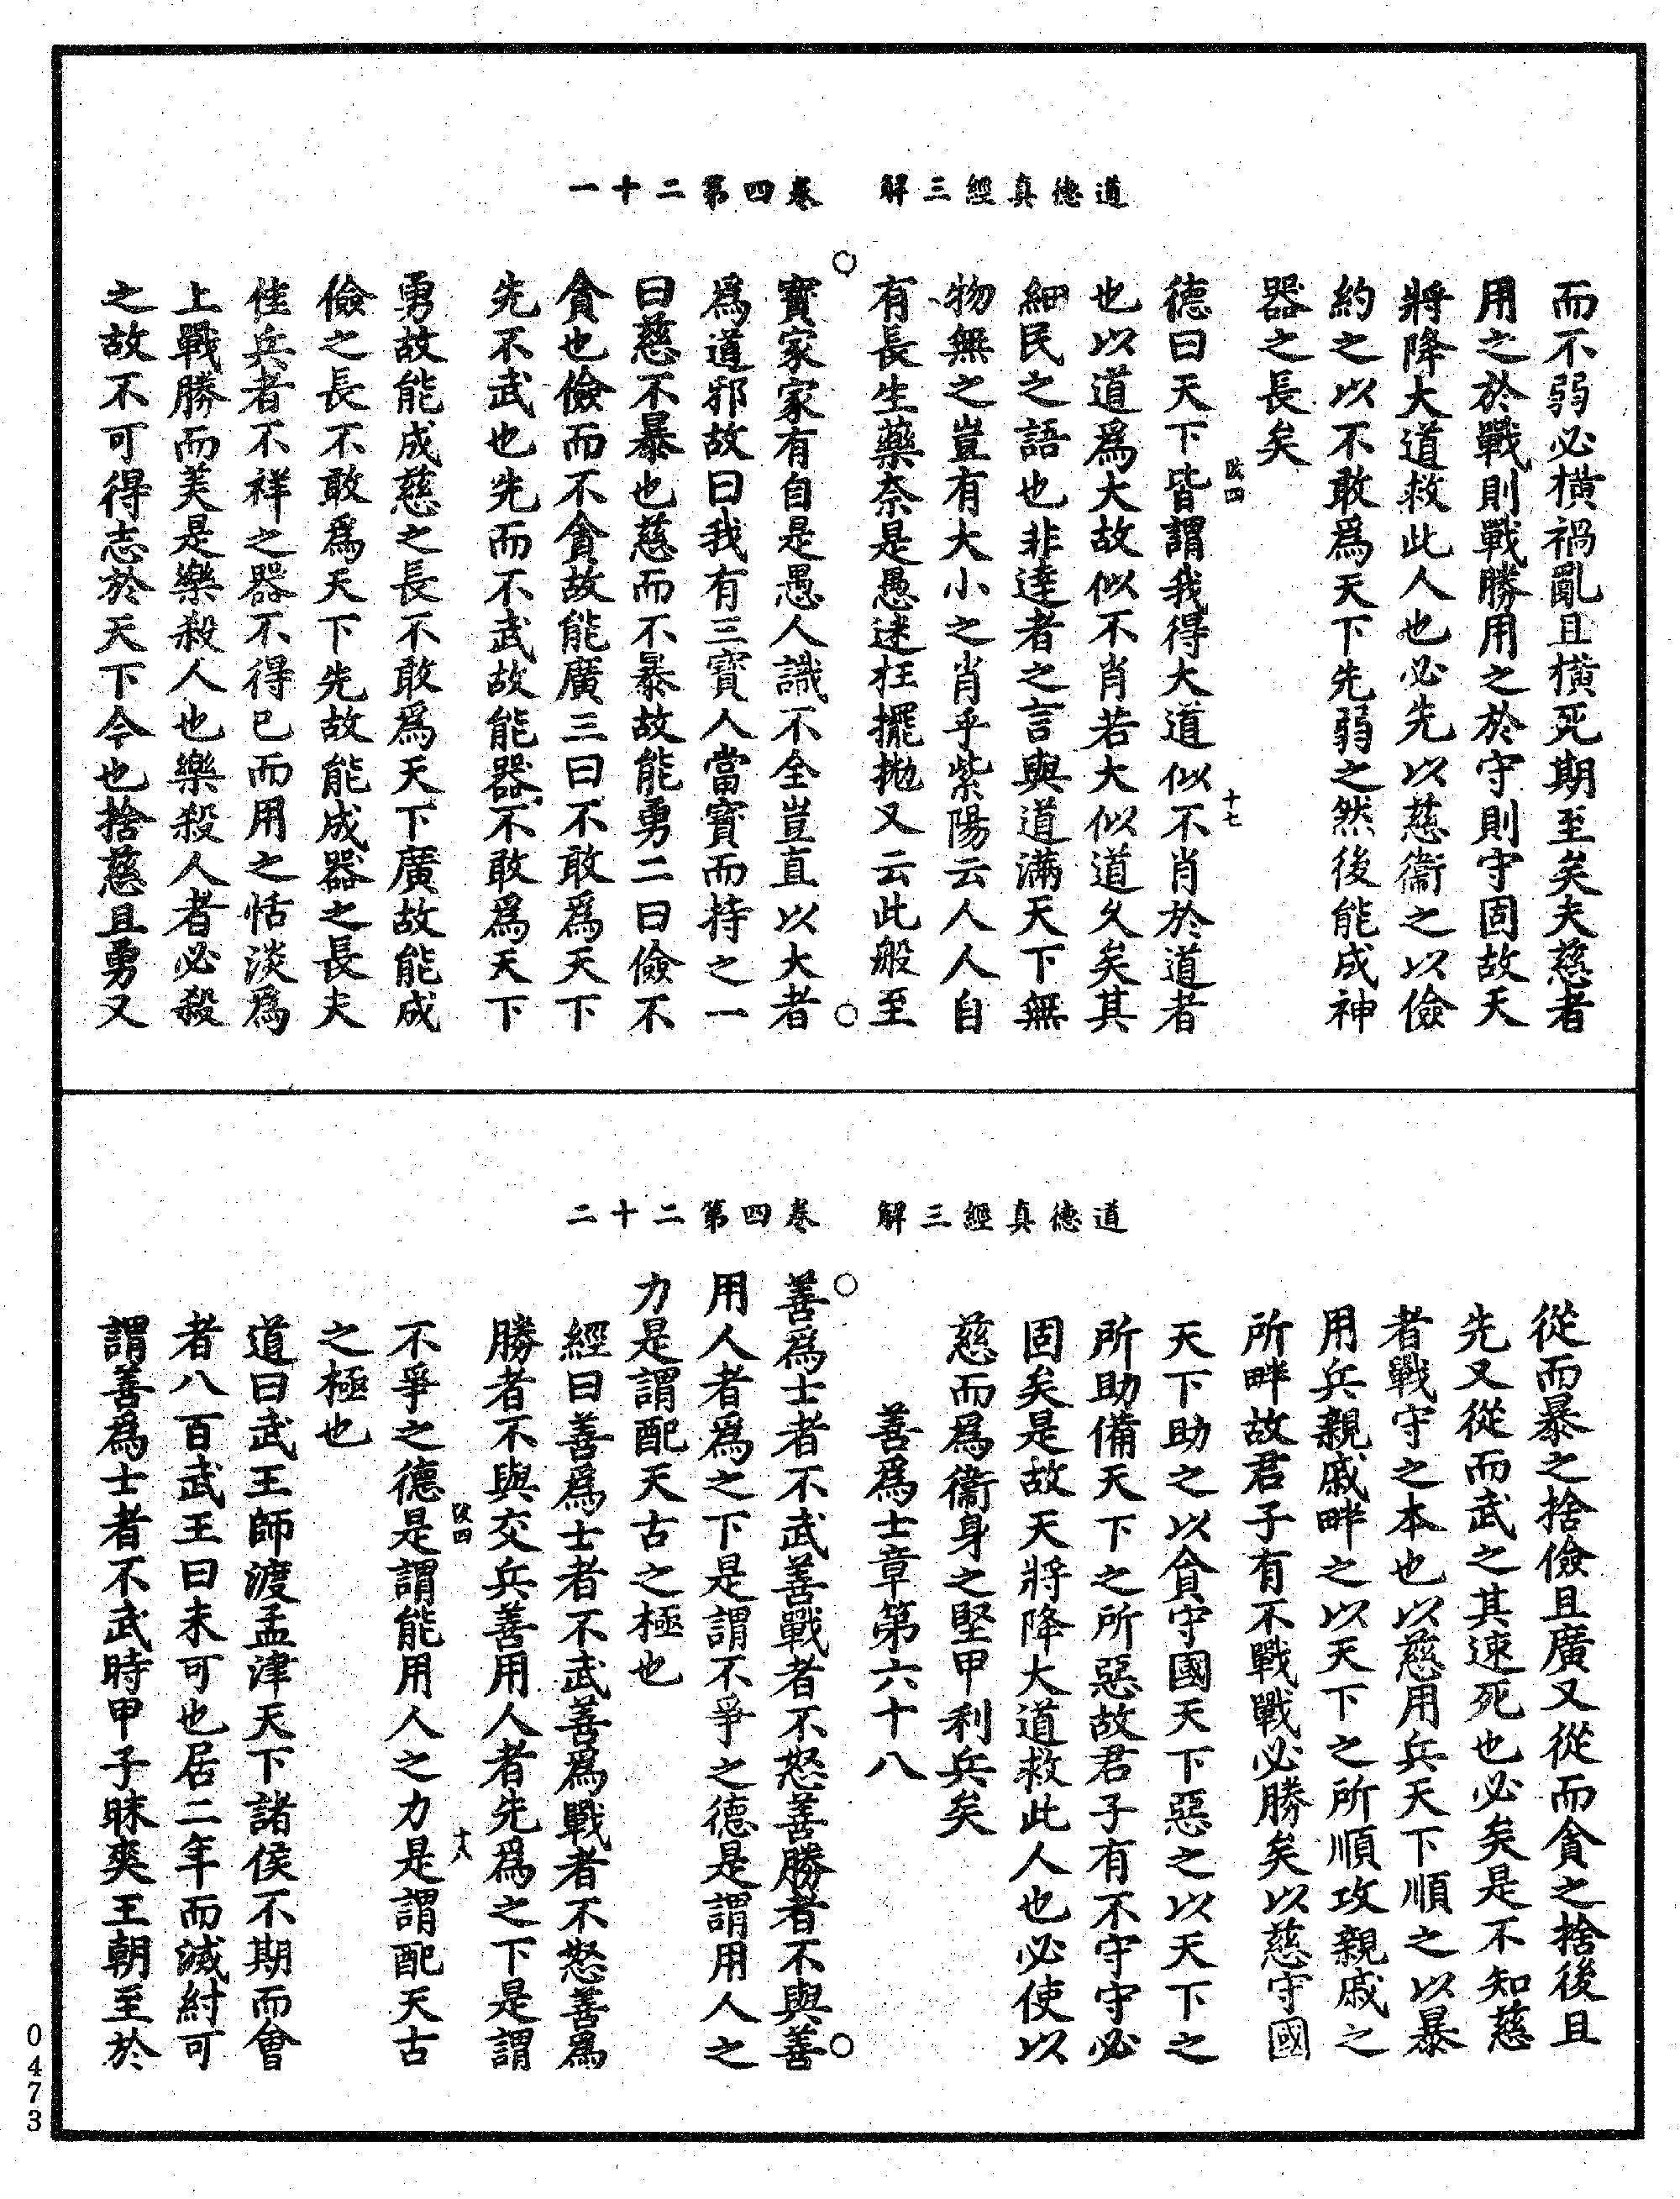 道德真經三解　卷四第二十一
而不弱必橫禍亂且橫死期至矣夫慈者
用之於戰則戰勝用之於守則守固故天
將降大道救此人也必先以慈衞之以儉
約之以不敢爲天下先弱之然後能成神
器之長矣
德曰天下皆謂我得大道似不肖於道者
也以道爲大故似不肖若大似道久矣其
細民之語也非達者之言與道滿天下無
物無之豈有大小之肖乎紫陽云人人自
有長生藥奈是愚迷枉擺拋又云此般至
寳家家有自是愚人識不全豈直以大者
爲道邪故曰我有三寳人當寳而持之一
曰慈不暴也慈而不暴故能勇二曰儉不
貪也儉而不貪故能廣三曰不敢爲天下
先不武也先而不武故能器不敢爲天下
勇故能成慈之長不敢爲天下廣故能成
儉之長不敢爲天下先故能成器之長夫
佳兵者不祥之器不得已而用之恬淡爲
上戰勝而美是樂殺人也樂殺人者必殺
之故不可得志於天下今也捨慈且勇又
十七
道德真經三解　卷四第二十二
從而暴之捨儉且廣又從而貪之捨後且
先又從而武之其速死也必矣是不知慈
者戰守之本也以慈用兵天下順之以暴
用兵親戚畔之以天下之所順攻親戚之
所畔故君子有不戰戰必勝矣以慈守國
天下助之以貪守國天下惡之以天下之
所助備天下之所惡故君子有不守守必
固矣是故天將降大道救此人也必使以
慈而爲衞身之堅甲利兵矣
善爲士章第六十八
善爲士者不武善戰者不怒善勝者不與善
用人者爲之下是謂不爭之德是謂用人之
力是謂配天古之極也
經曰善爲士者不武善爲戰者不怒善爲
勝者不與交兵善用人者先爲之下是謂
不爭之德是謂能用人之力是謂配天古
之極也
道曰武王師渡孟津天下諸侯不期而會
者八百武王曰未可也居二年而滅紂可
謂善爲士者不武時甲子昧爽王朝至於
十八
0473